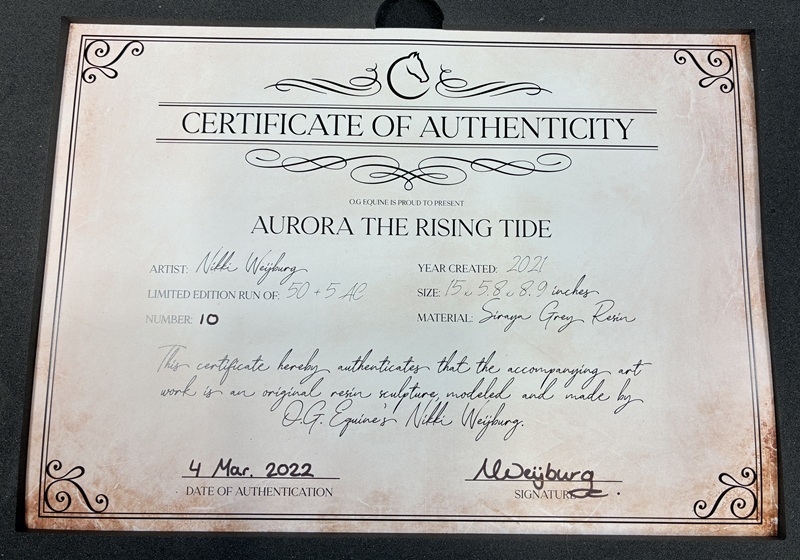 CERTIFICATE OF AUTHENTICITY
O.G EQUINE IS PROUD TO PRESENT
AURORA THE RISING TIDE
ARTIST: Nikki Weijburg
YEAR CREATED: 2021
LIMITED EDITION RUN OF: 50 + 5 AC
SIZE: 15 x 5.8 x 8.9 inches
NUMBER: 10
MATERIAL: Siraya Grey Resin
This certificate hereby authenticates that the accompanying art
work is an original resin sculpture, modeled and made by
O.G. Equine's Nikki Weijburg.
4 Mar. 2022
NWeijburg
DATE OF AUTHENTICATION
SIGNATURE